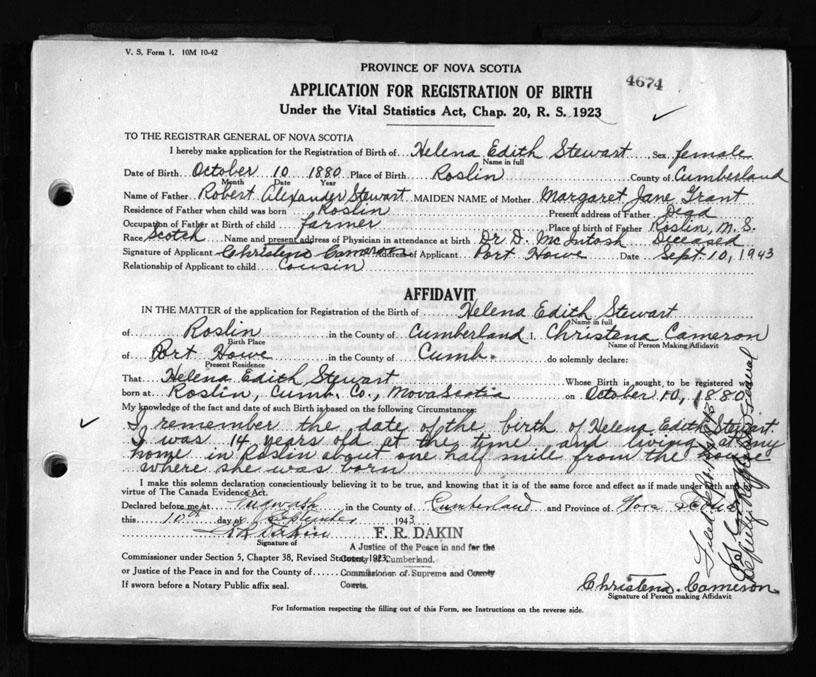 V. S. Form 1. 10M 10-42
PROVINCE OF NOVA SCOTIA
4674
APPLICATION FOR REGISTRATION OF BIRTH
Under the Vital Statistics Act, Chap. 20, R. S. 1923
TO THE REGISTRAR GENERAL OF NOVA SCOTIA
I hereby make application for the Registration of Birth of Helena Edith Stewart Sex female
Name in full
Date of Birth October 10 1880 Place of Birth Roslin County of Cumberland
Month Date Year
Name of Father Robert Alexander Stewart MAIDEN NAME of Mother Margaret Jane Grant
Residence of Father when child was born Roslin Present address of Father Dead
Occupation of Father at Birth of child farmer Place of birth of Father Roslin, N. S.
Race Scotch Name and present address of Physician in attendance at birth Dr. D. McIntosh Deceased
Signature of Applicant Christena Cameron Address of Applicant Port Howe Date Sept. 10, 1943
Relationship of Applicant to child Cousin
AFFIDAVIT
IN THE MATTER of the application for Registration of the Birth of Helena Edith Stewart
Name in full
of Roslin in the County of Cumberland I, Christena Cameron
Birth Place Name of Person Making Affidavit
of Port Howe in the County of Cumb. do solemnly declare:
Present Residence
That Helena Edith Stewart Whose Birth is sought to be registered was
born at Roslin, Cumb. Co., Nova Scotia on October 10, 1880
My knowledge of the fact and date of such Birth is based on the following Circumstances:
I remember the date of the birth of Helena Edith Stewart
I was 14 years old at the time and living at my
home in Roslin about one half mile from the house
where she was born
I make this solemn declaration conscientiously believing it to be true, and knowing that it is of the same force and effect as if made under oath and
virtue of The Canada Evidence Act.
Declared before me at Pugwash in the County of Cumberland and Province of Nova Scotia
this 10th day of September 1943
F R Dakin F. R. DAKIN
Signature of A Justice of the Peace in and for the
Commissioner under Section 5, Chapter 38, Revised Statutes, 1923, County of Cumberland.
or Justice of the Peace in and for the County of Commissioner of Supreme and County
If sworn before a Notary Public affix seal. Courts.
Christena Cameron
Signature of Person making Affidavit
For Information respecting the filling out of this Form, see Instructions on the reverse side.
Deputy Registrar General